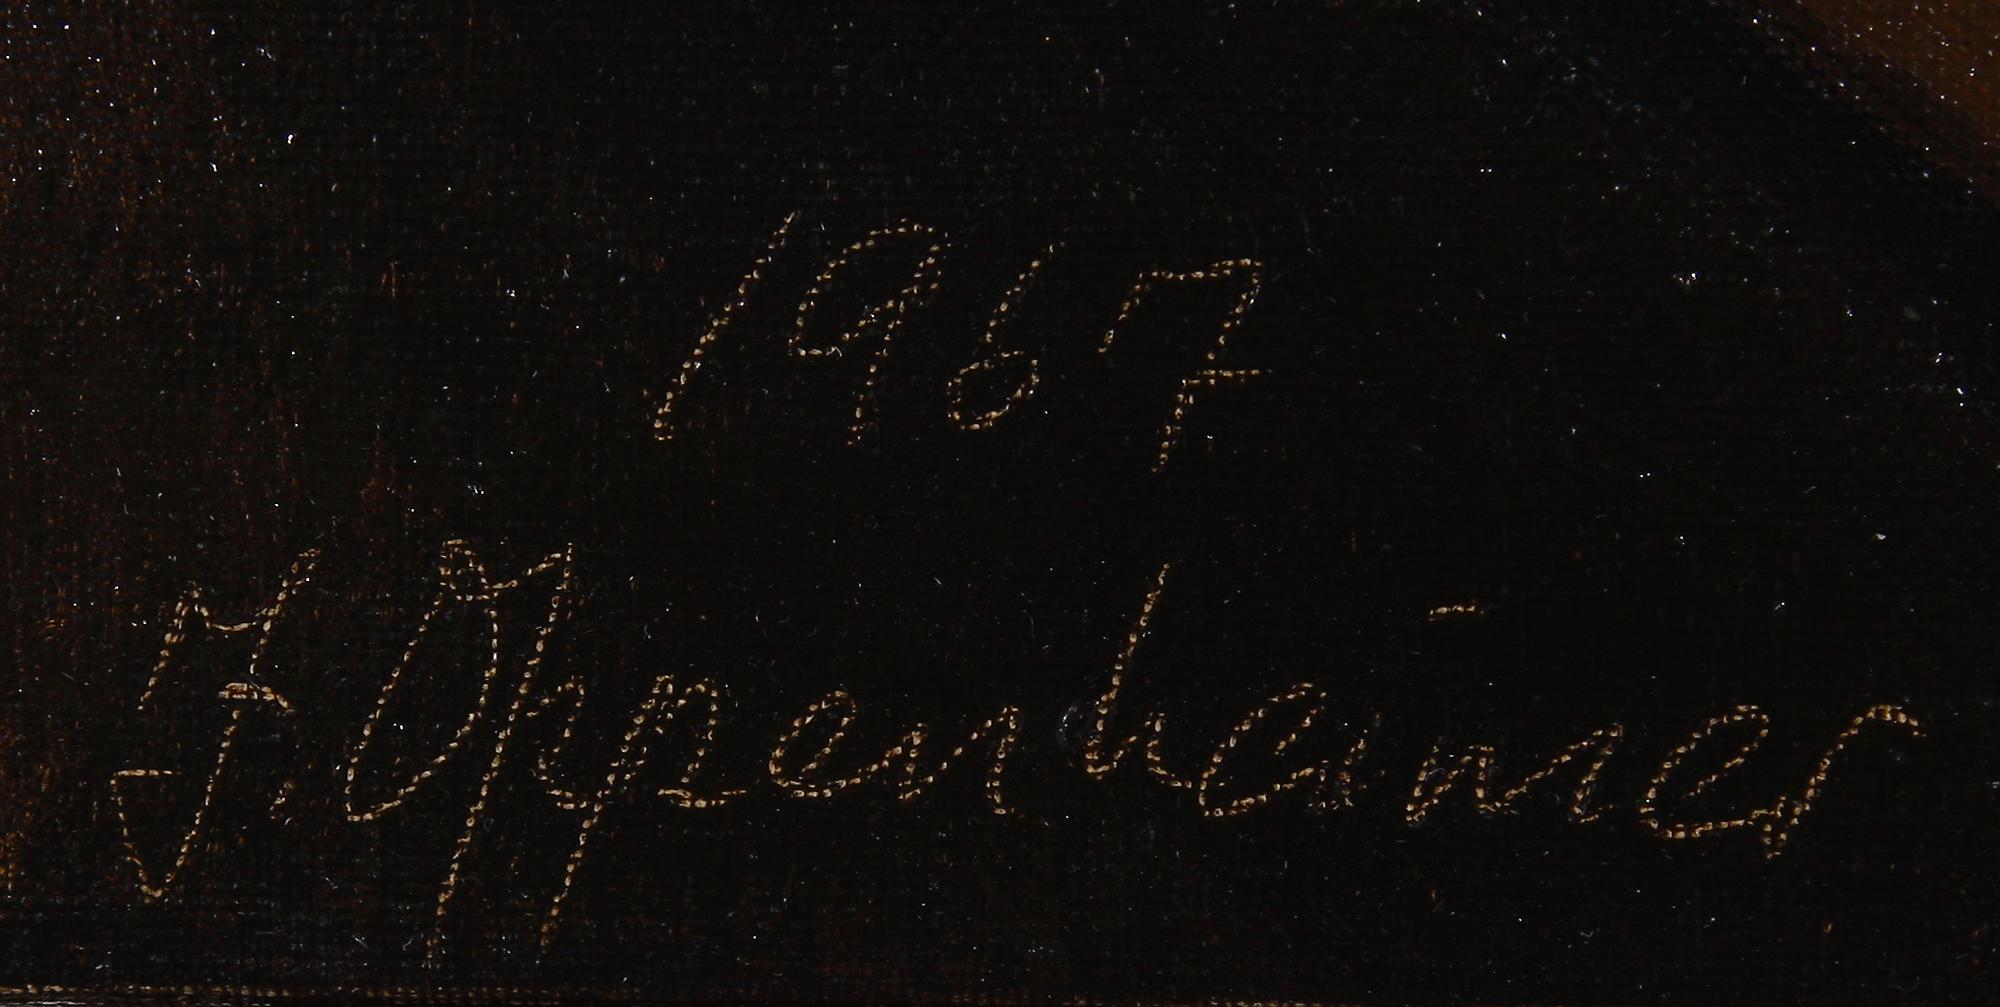 1967
J. Oppenheimer